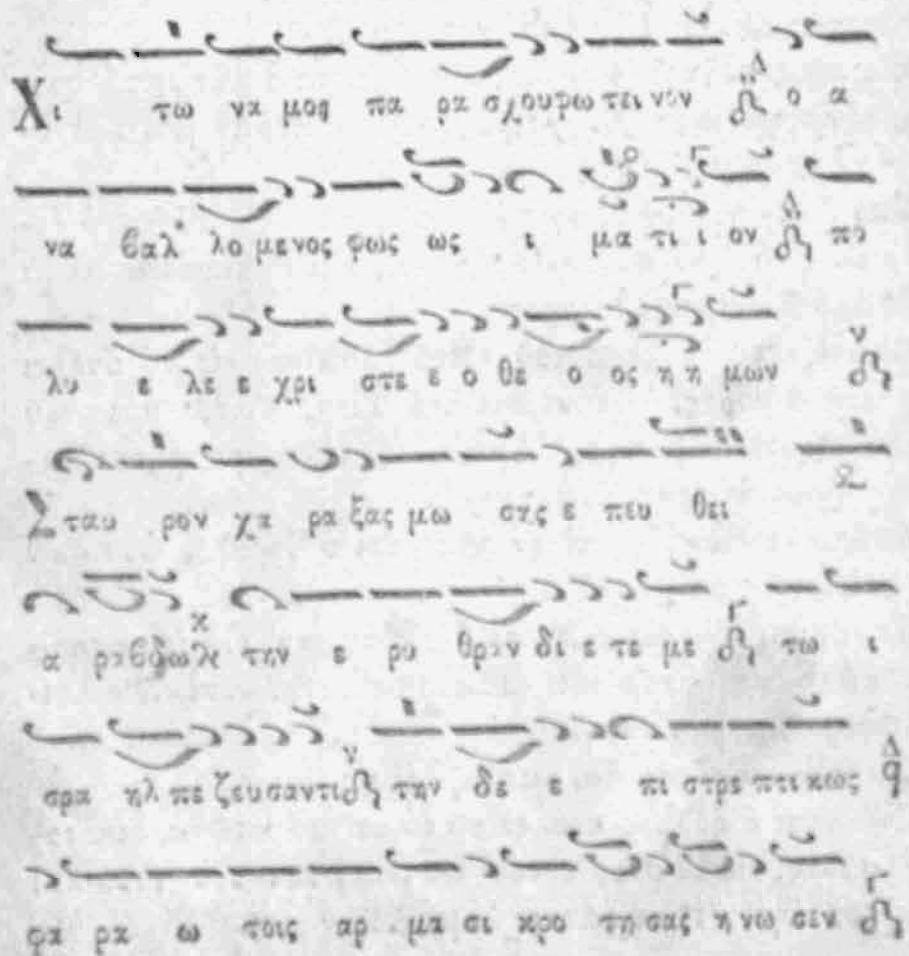 Χι τω να μοϛ πα ρα σχουφω τει νον Δ ο α
να ϐαλ λο μενος φως ως ι μα τι ι ον Δ πο
λυ ε λε ε χρι στε ε ο θε ο ος η η μων ν
Σταυ ρον χα ρα ξας μω σης ε πευ θει
α ραϐδω κ την ε ρυ θραν δι ε τε με Γ τω ι
σρα ηλ πε ζευσαντι ν την δε ε πι στρε πτι κως Δ q
φα ρα ω τοις αρ μα σι κρο τη σας η νω σεν Γ